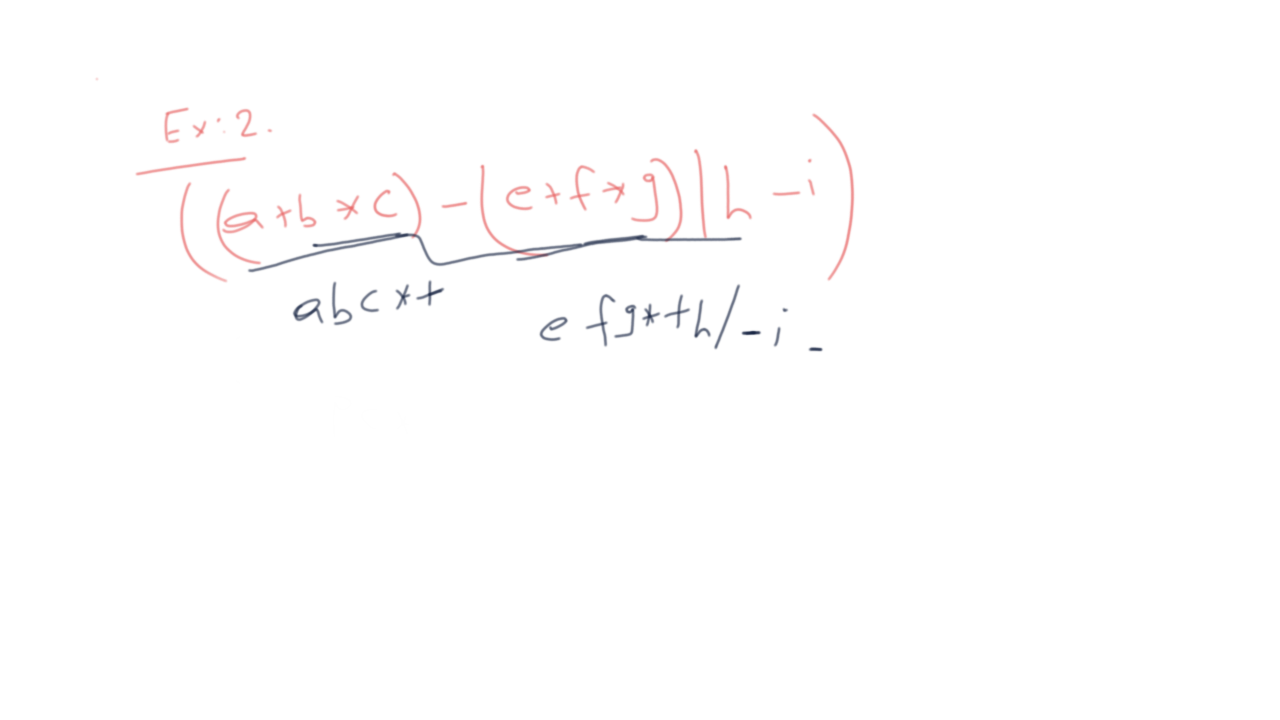 Ex: 2.
((a+b*c)-(e+f*g)|h-i)
abc*+ efg*+h/-i-